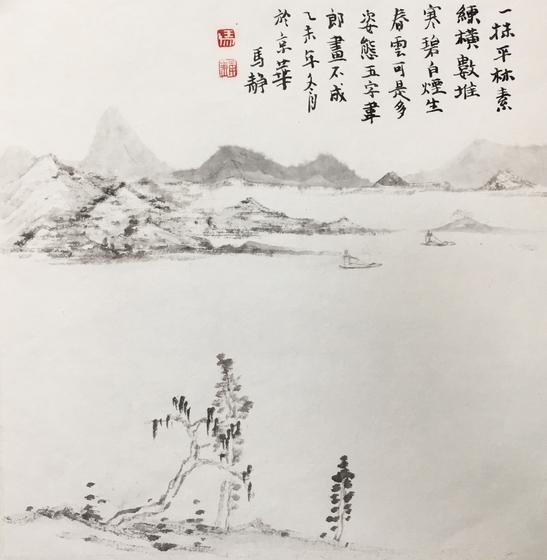 一抹平林素
練橫數堆
寒碧白煙生
春雲可是多
姿態五字韋
郎畫不成
乙未年冬月
於京華
馬靜
馬